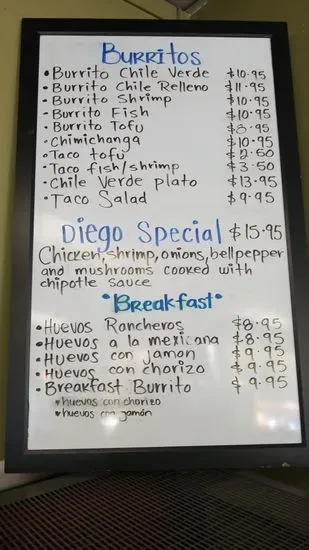 Burritos
• Burrito Chile Verde $10.95
• Burrito Chile Relleno $11.95
• Burrito Shrimp $10.95
• Burrito Fish $10.95
• Burrito Tofu $8.95
• Chimichanga $10.95
• Taco tofu $2.50
• Taco fish/shrimp $3.50
• Chile Verde plato $13.95
• Taco Salad $9.95
Diego Special $15.95
Chicken, shrimp, onions, bell pepper
and mushrooms cooked with
chipotle sauce
•Breakfast•
• Huevos Rancheros $8.95
• Huevos a la mexicana $8.95
• Huevos con jamon $9.95
• Huevos con chorizo $9.95
• Breakfast Burrito $9.95
• huevos con chorizo
• huevos con jamón